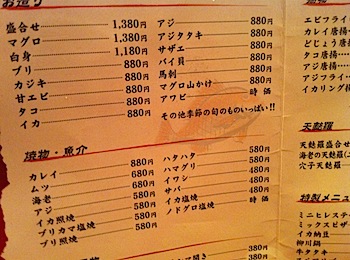 お造り
盛合せ 1,380円
マグロ 1,380円
白身 1,180円
ブリ 880円
カジキ 880円
甘エビ 880円
タコ 880円
イカ 880円
アジ 880円
アジタタキ 880円
サザエ 880円
バイ貝 880円
馬刺 880円
マグロ山かけ 880円
アワビ 時価
その他季節の旬のものいっぱい!!
焼物・魚介
カレイ 680円
ムツ 680円
海老 680円
アジ 580円
イカ照焼 580円
ブリカマ塩焼
ブリカマ照焼
ハタハタ 580円
ハマグリ 580円
イワシ 480円
サバ 480円
イカ塩焼 480円
ノドグロ塩焼 時価
エビフライ
カレイ唐揚
どじょう唐揚
タコ唐揚
アジ唐揚
アジフライ
イカリング揚
天麩羅
天麩羅盛合せ
海老の天麩羅
穴子天麩羅
特製メニュ
ミニヒレステ
ミックスピザ
イカ納豆
柳川鍋
牛タタキ
380円